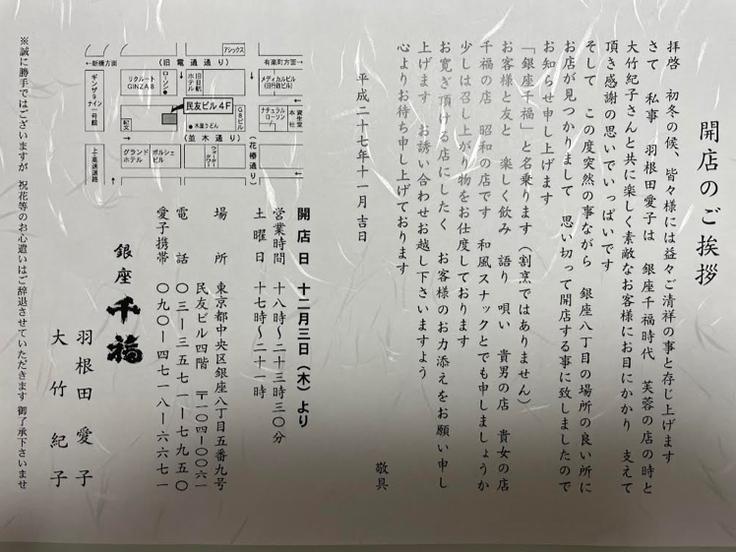 開店のご挨拶
拝啓　初冬の候、皆々様には益々ご清祥の事と存じ上げます
さて　私事　羽根田愛子は　銀座千福時代　芙蓉の店の時と
大竹紀子さんと共に楽しく素敵なお客様にお目にかかり　支えて
頂き感謝の思いでいっぱいです
そして　この度突然の事ながら　銀座八丁目の場所の良い所に
お店が見つかりまして　思い切って開店する事に致しましたので
お知らせ申し上げます
「銀座千福」と名乗ります（割烹ではありません）
お客様と友と　楽しく飲み　語り　唄い　貴男の店　貴女の店
千福の店　昭和の店です　和風スナックとでも申しましょうか
少しは召し上がり物をお仕度しております
お寛ぎ頂ける店にしたく　お客様のお力添えをお願い申し
上げます　お誘い合わせお越し下さいますよう
心よりお待ち申し上げております
敬具
平成二十七年十一月吉日
開店日　十二月三日（木）より
営業時間　十八時〜二十三時三〇分
土曜日　十七時〜二十一時
場所　東京都中央区銀座八丁目五番九号
民友ビル四階　〒一〇四-〇〇六一
電話　〇三-三五七一-七九五〇
愛子携帯　〇九〇-四七一八-六六七一
銀座　千福
羽根田　愛子
大竹　紀子
※誠に勝手ではございますが　祝花等のお心遣いはご辞退させていただきます　御了承下さいませ
アシックス
←新橋方面
（旧電通通り）
有楽町方面→
ギンザナイン一号館
リクルートGINZA8
ローソン
旧日航ホテル
メディカルビル
民友ビル4F
Gビル
ナチュラルローソン
資生堂本社
木屋うどん
（並木通り）
（花椿通り）
上高速道路
グランドホテル
ポルシェビル